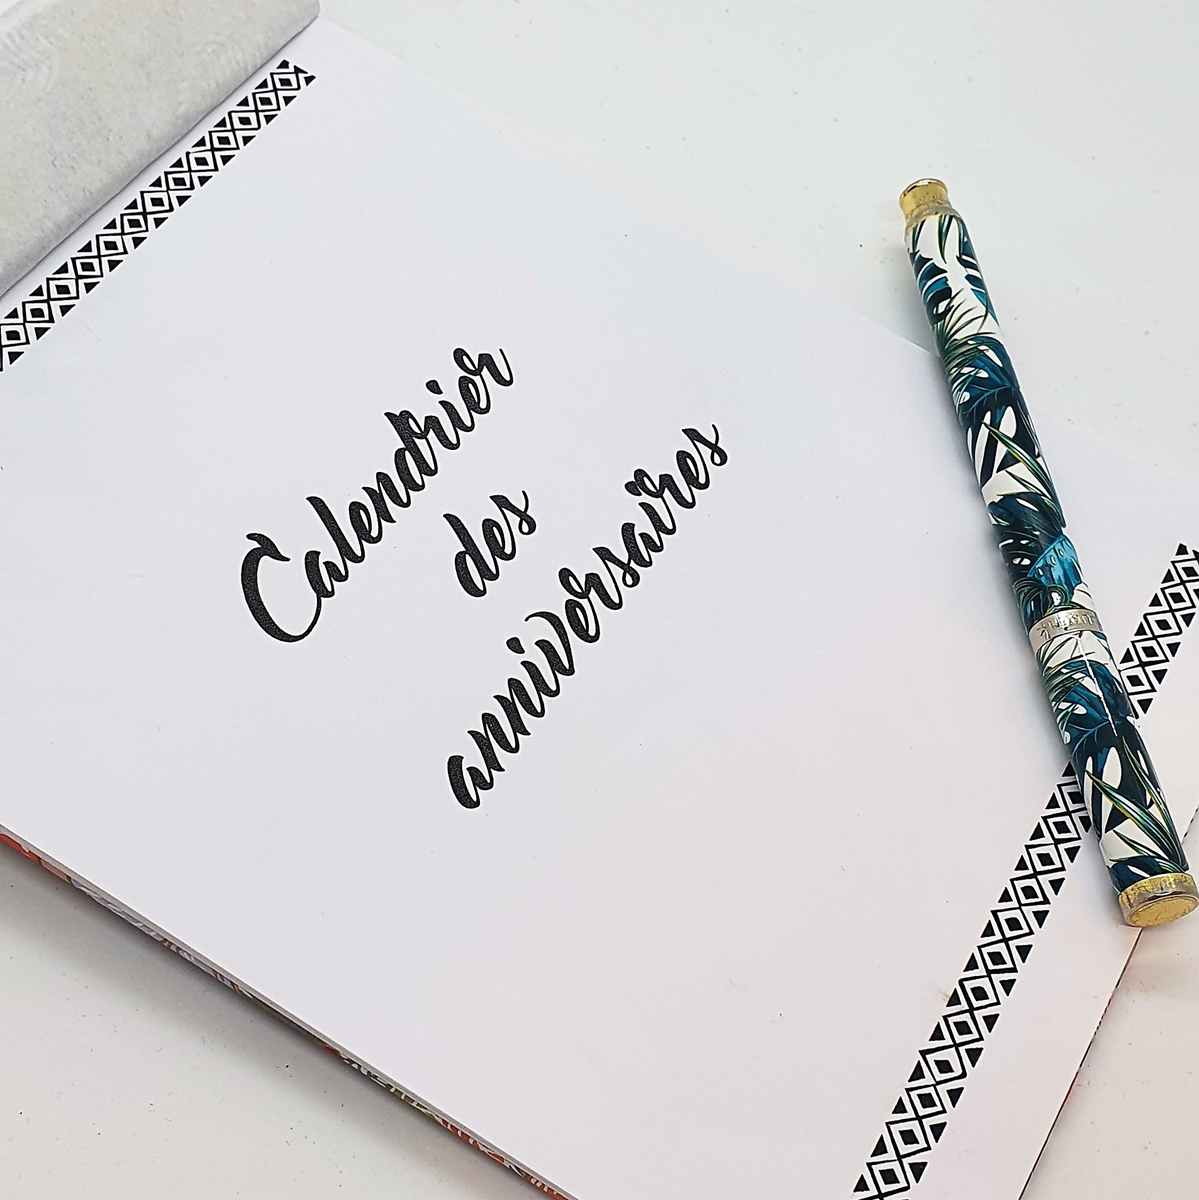 Calendrier
des
anniversaires